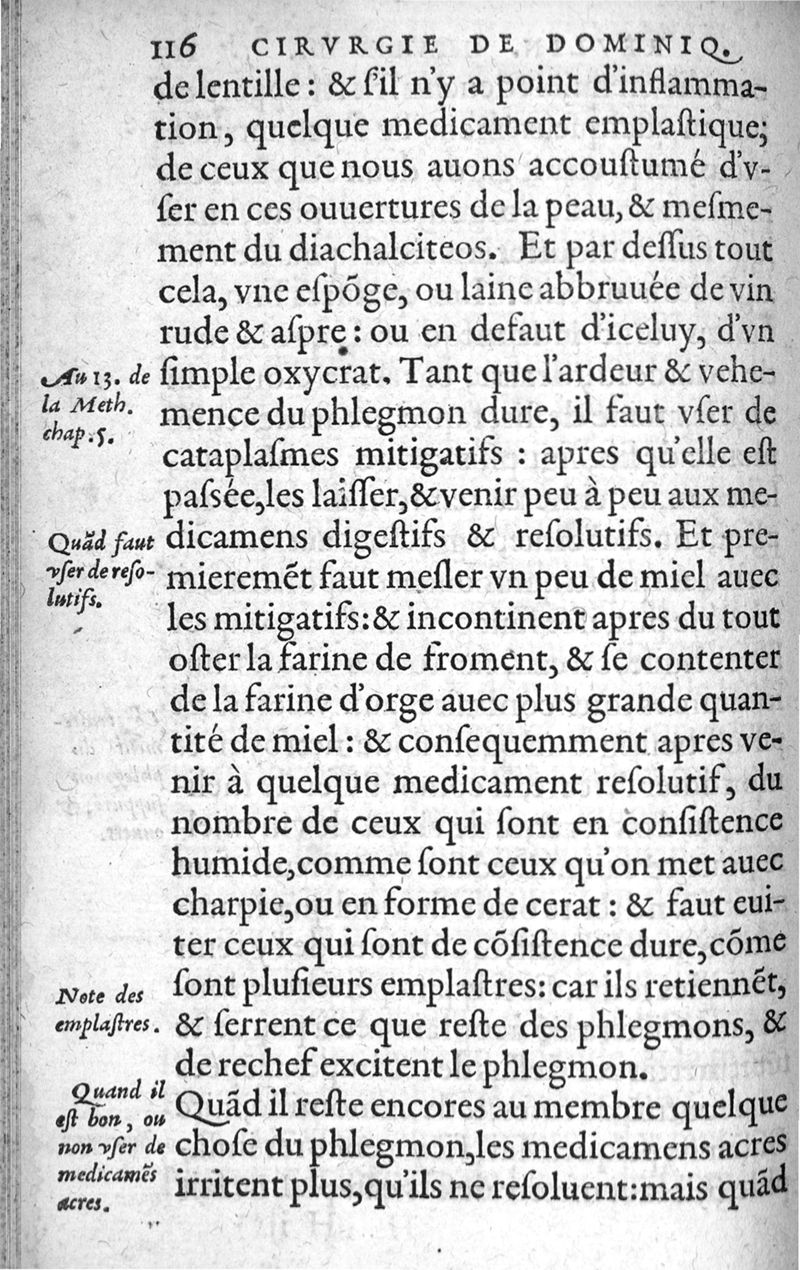 116 CIRVRGIE DE DOMINIQ.
de lentille : & ſ'il n'y a point d'inflamma-
tion, quelque medicament emplaſtique;
de ceux que nous auons accouſtumé d'v-
ſer en ces ouuertures de la peau, & meſme-
ment du diachalciteos. Et par deſſus tout
cela, vne eſpõge, ou laine abbruuée de vin
rude & aſpre : ou en defaut d'iceluy, d'vn
ſimple oxycrat. Tant que l'ardeur & vehe-
mence du phlegmon dure, il faut vſer de
cataplaſmes mitigatifs : apres qu'elle eſt
paſsée,les laiſſer,& venir peu à peu aux me-
dicamens digeſtifs & reſolutifs. Et pre-
mieremẽt faut meſler vn peu de miel auec
les mitigatifs:& incontinent apres du tout
oſter la farine de froment, & ſe contenter
de la farine d'orge auec plus grande quan-
tité de miel : & conſequemment apres ve-
nir à quelque medicament reſolutif, du
nombre de ceux qui ſont en conſiſtence
humide,comme ſont ceux qu'on met auec
charpie,ou en forme de cerat : & faut eui-
ter ceux qui ſont de cõſiſtence dure,cõme
ſont pluſieurs emplaſtres: car ils retiennẽt,
& ſerrent ce que reſte des phlegmons, &
de rechef excitent le phlegmon.
Quãd il reſte encores au membre quelque
choſe du phlegmon,les medicamens acres
irritent plus,qu'ils ne reſoluent:mais quãd
Au 13. de
la Meth.
chap.5.
Quãd faut
vſer de reſo-
lutifs.
Note des
emplaſtres.
Quand il
eſt bon, ou
non vſer de
medicamẽs
acres.